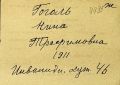 Гоголь
Нина
Трофимовна
1911
Инвалидн. дут. 46